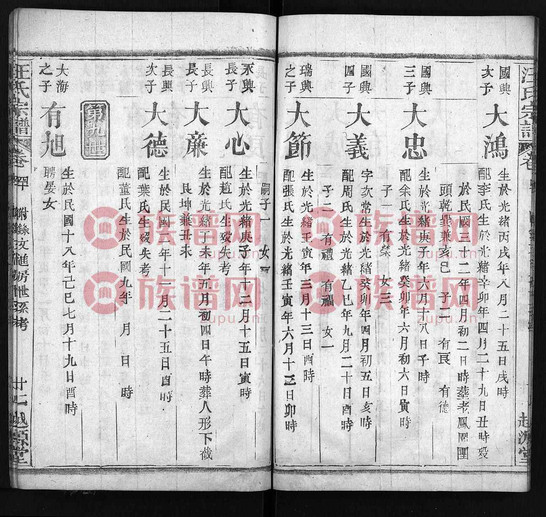 汪氏宗譜
越源堂
國興
次子
大鴻
生於光緒丙戌年八月二十五日戌時
配李氏生於光緒辛卯年四月二十九日丑時歿
於民國二十二年四月初二日時葬老鳳
頭乾巽兼亥巳 子二 有良 有德
國興
三子
大忠
生於光緒庚子年六月十八日子時
配余氏生於光緒癸卯年六月初六日寅時
子一 有 女三
國興
四子
大義
字次常生於光緒癸卯年四月初五日亥時
配周氏生於光緒乙巳年九月二十日酉時
子二 有禮 有 女一
瑞興
之子
大節
生於光緒壬寅年三月十三日酉時
配張氏生於光緒壬寅年六月十三日卯時
嗣子一 女一
永興
長子
大心
生於光緒庚子年十二月十五日寅時
配趙氏生歿失考
長興
長子
大廉
生於光緒丁未年五月初四日午時葬人形下截
艮坤兼丑未
長興
次子
大德
生於民國四年十月二十五日酉時
配葉氏生歿失考
配董氏生於民國九年 月 日 時
第九世
大海
之子
有旭
生於民國十八年己巳七月十九日酉時
聘晏女
汪氏宗譜
卷
世系考
廿一
越源堂
族谱网
zupu.cn